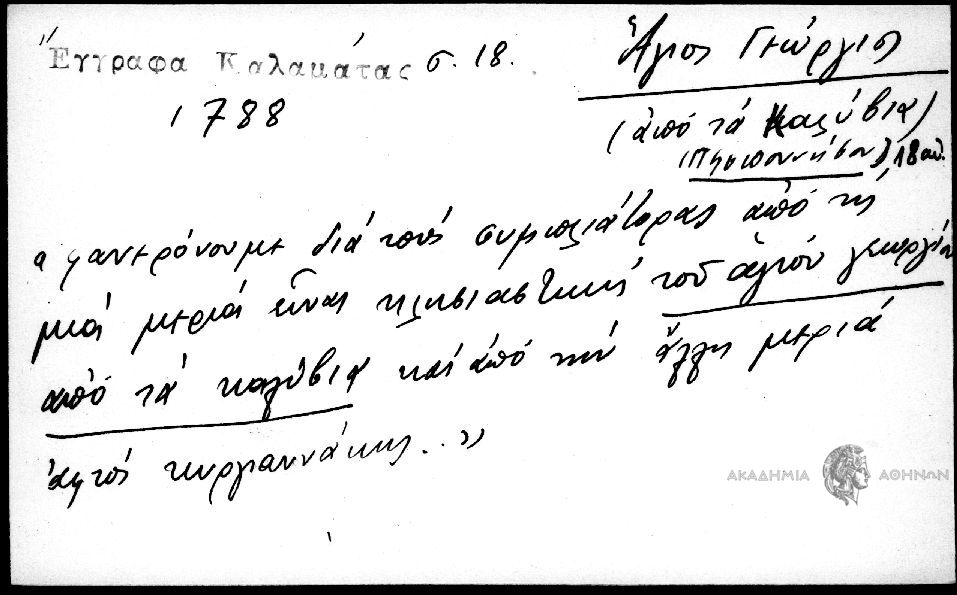 Ἔγγραφα Καλαμάτας σ. 18.
1788
Ἅγιος Γεώργιος
(ἀπό τά Καλύβια)
(Πελοποννήσου) 18 αἰ.
φανερόνουμε διά τούς συμπλιάτορας ἀπό τῆς
μιά μεριά εἶναι κλησιαστικῆς τοῦ ἁγίου γεωργίου
ἀπό τά καλύβια καί ἀπό τήν ἄλλη μεριά
ἀφτός κυργιαννάκης..»
ΑΚΑΔΗΜΙΑ ΑΘΗΝΩΝ